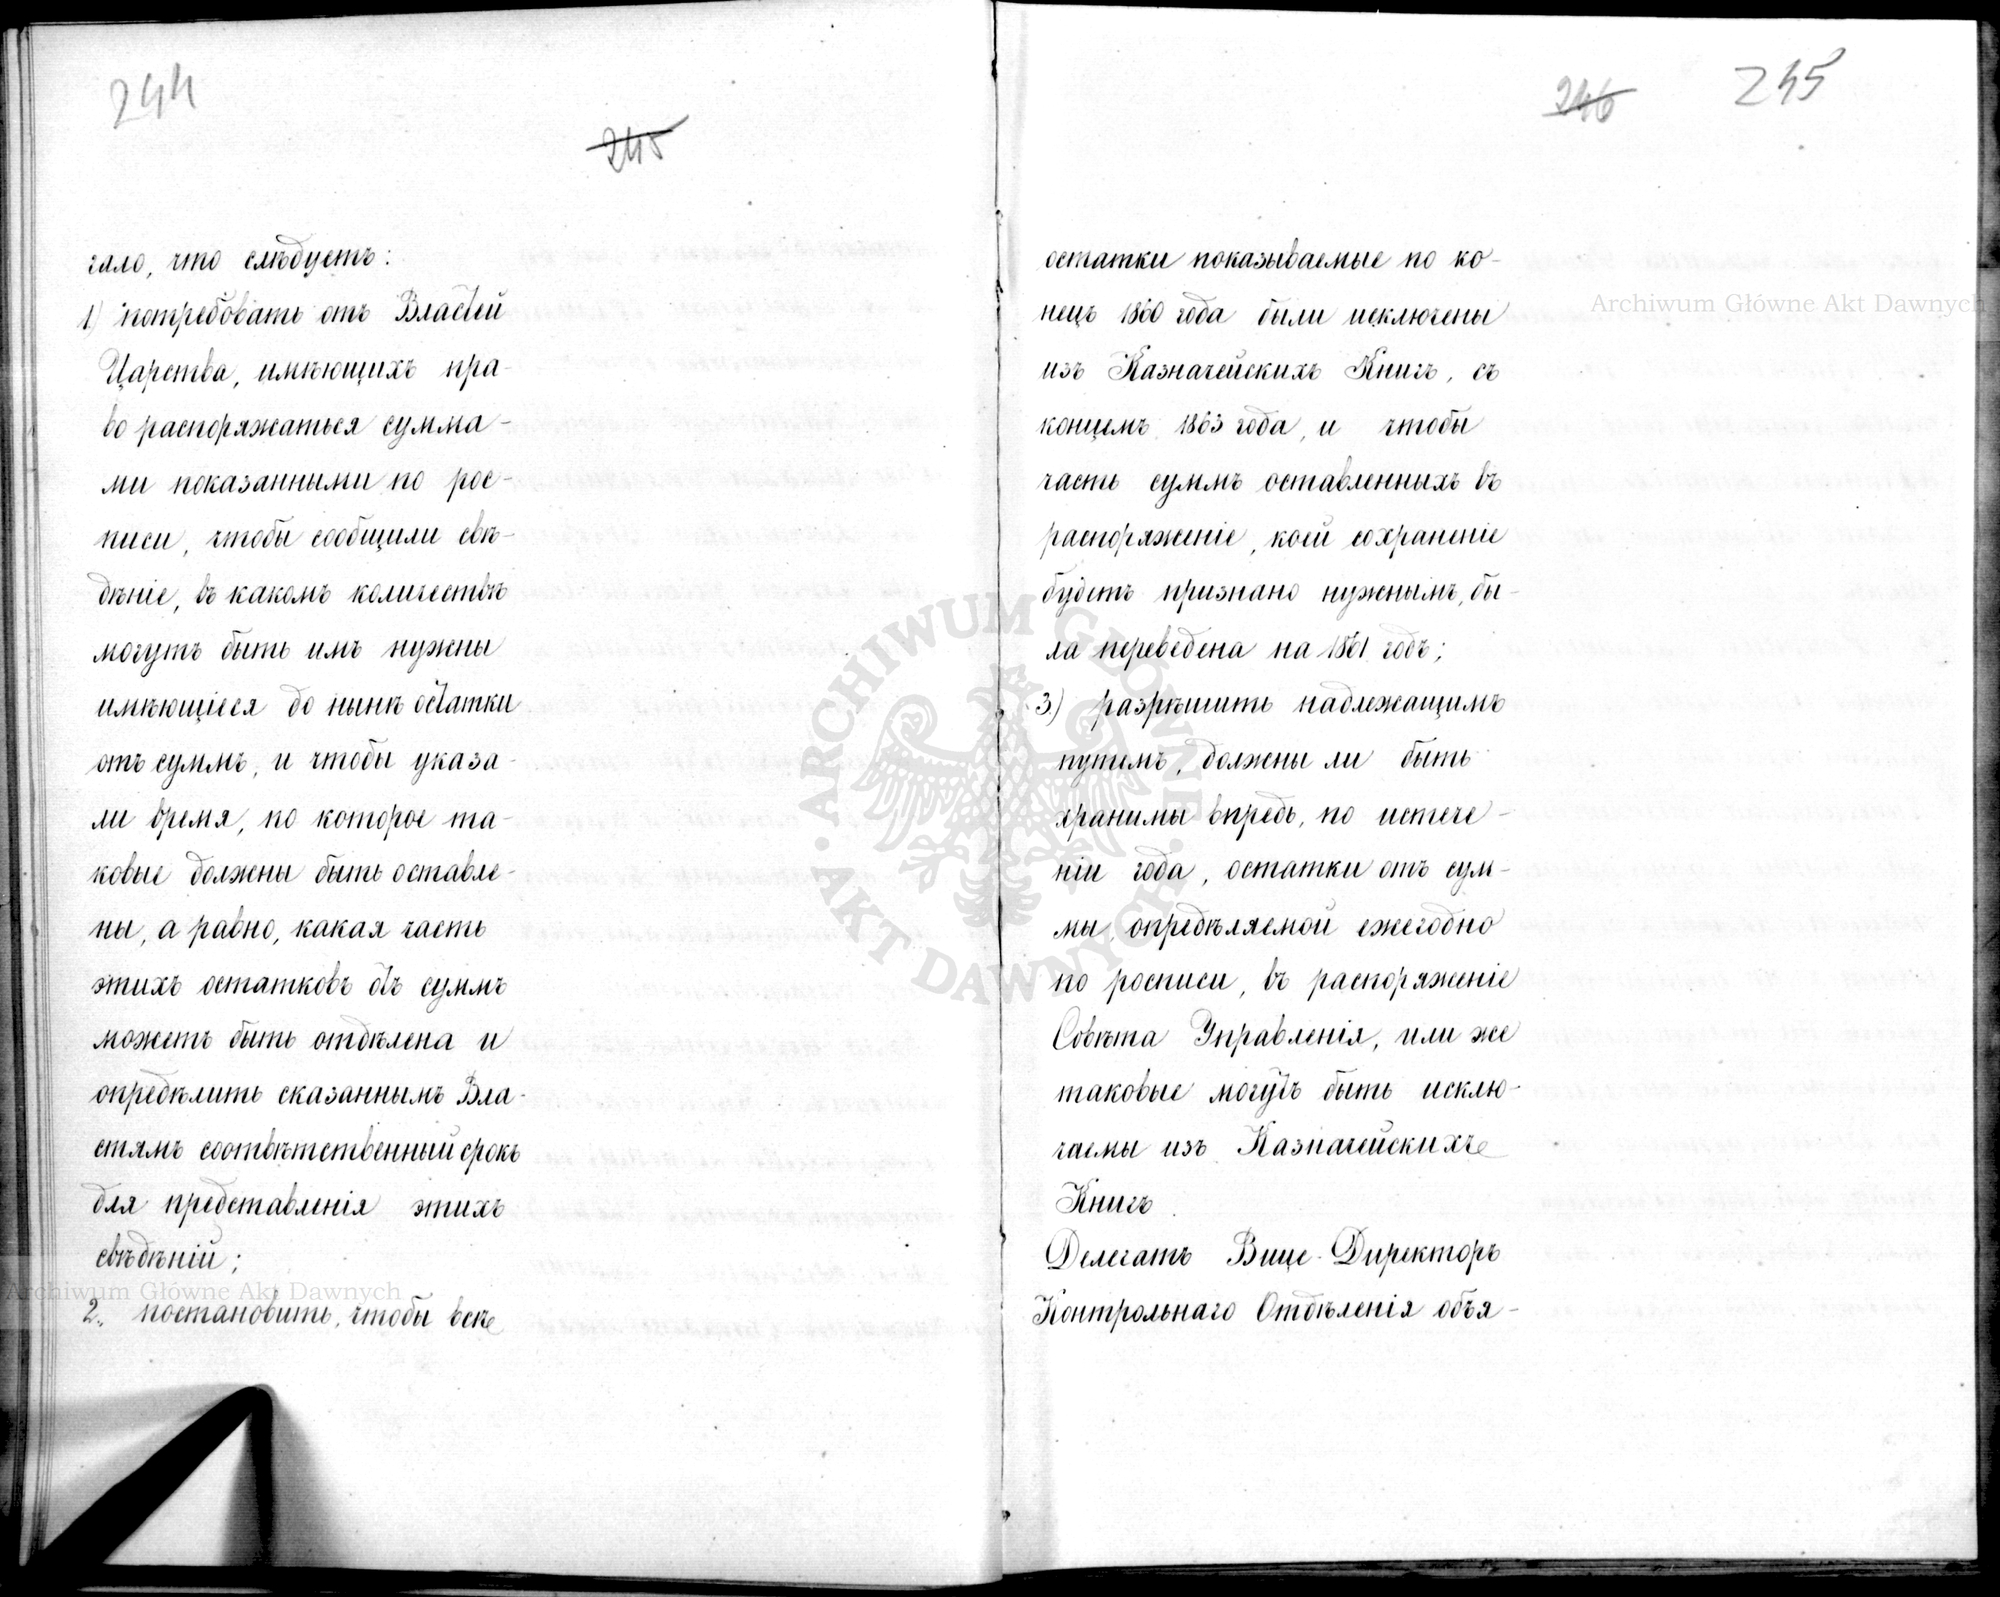 244
245
гало, что слѣдуетъ:
1) потребовать отъ Властей
Царства, имѣющихъ пра-
во распоряжаться сумма-
ми показанными по рос-
писи, чтобы сообщили свѣ-
дѣніе, въ какомъ количествѣ
могутъ быть имъ нужны
имѣющіеся до нынѣ остатки
отъ суммъ, и чтобы указа-
ли время, по которое та-
ковые должны быть оставле-
ны, а равно, какая часть
этихъ остатковъ отъ суммъ
можетъ быть отдѣлена и
опредѣлить сказаннымъ Вла-
стямъ соотвѣтственный срокъ
для представленія этихъ
свѣдѣній;
2. постановить, чтобы всѣ
Archiwum Główne Akt Dawnych
246 245
остатки показываемые по ко-
нецъ 1860 года были исключены
изъ Казначейскихъ Книгъ, съ
концемъ 1863 года, и чтобы
часть суммъ оставленныхъ въ
распоряженіе, коей сохраненіе
будетъ признано нужнымъ, бы-
ла переведена на 1861 годъ;
3) разрѣшить надлежащимъ
путемъ, должны ли быть
хранимы впредь, по истече-
ніи года, остатки отъ сум-
мы, опредѣляемой ежегодно
по росписи, въ распоряженіе
Совѣта Управленія, или же
таковые могутъ быть исклю-
чаемы изъ Казначейскихъ
Книгъ.
Делегатъ Вице-Директоръ
Контрольнаго Отдѣленія объя-
Archiwum Główne Akt Dawnych
ARCHIWUM GŁÓWNE AKT DAWNYCH